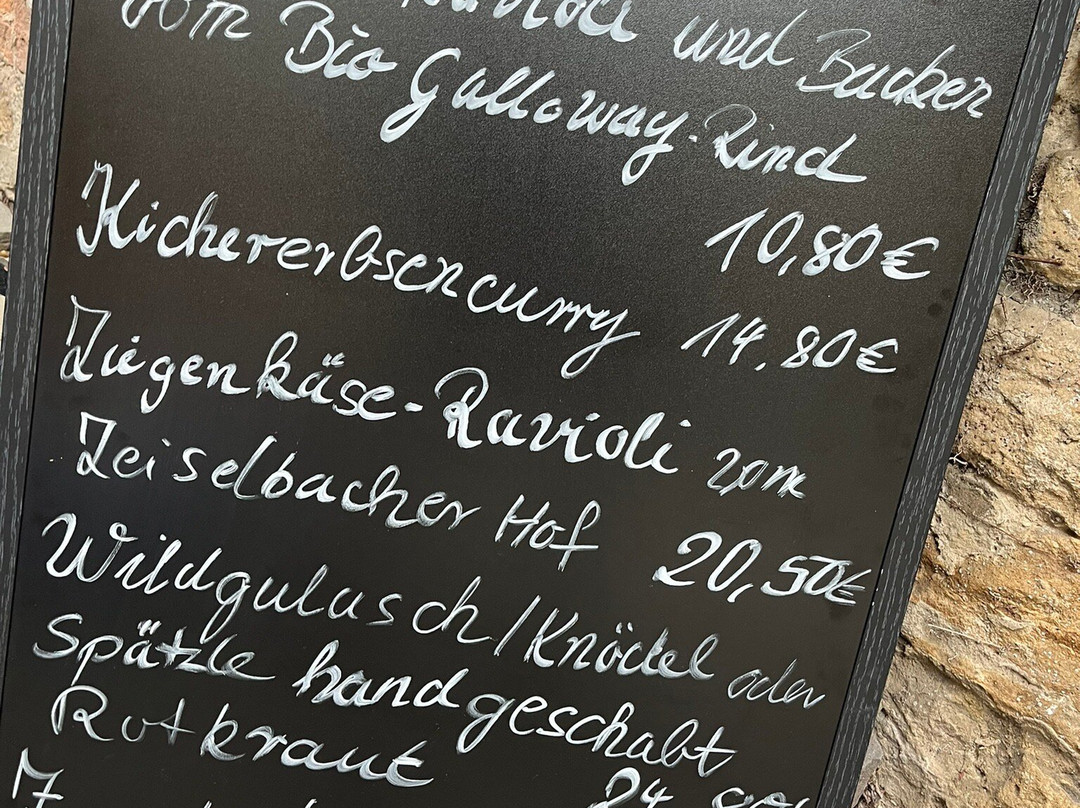 und Backen
vom Bio Galloway-Rind
10,80€
Kichererbsencurry 14.80€
Ziegenkäse-Ravioli vom
Zeiselbacher Hof 20,50€
Wildgulasch/Knödel oder
Spätzle handgeschabt
Rotkraut 24